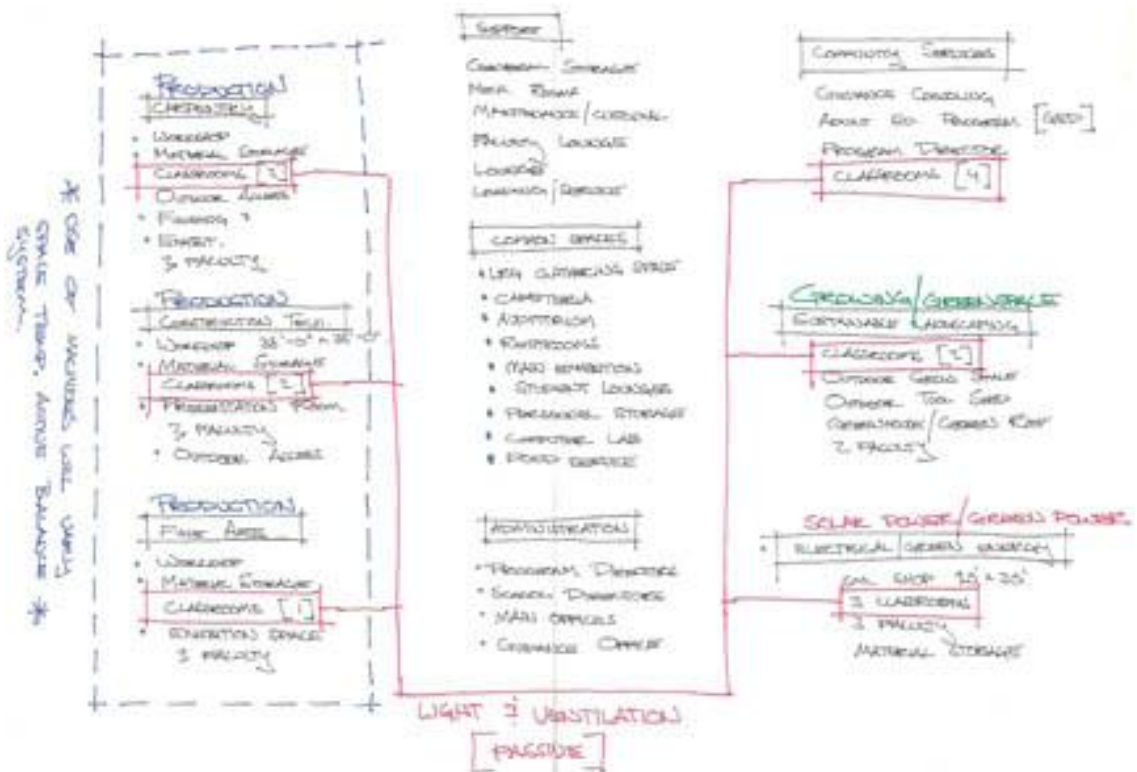 PRODUCTION
CARPENTRY
• WORKSHOP
• MATERIAL STORAGE
CLASSROOMS
• OUTDOOR ACCESS
• FINISHING
• EXHIBIT.
3 FACULTY
PRODUCTION
CONSTRUCTION TECH.
• WORKSHOP
• MATERIAL STORAGE
CLASSROOMS [2]
• PRESENTATION ROOM
3 FACULTY
• OUTDOOR ACCESS
PRODUCTION
FINE ARTS
• WORKSHOP
• MATERIAL STORAGE
CLASSROOMS [1]
• EXHIBITION SPACE
3 FACULTY
* USE OF MACHINES WILL VARY
SPACE TEMP. BALANCE *
SYSTEM.
SUPPORT
STORAGE
MECH. ROOMS
MAINTENANCE/CUSTODIAL
FACULTY LOUNGE
LOADING/SERVICE
COMMON SPACES
GATHERING SPACE
• CAFETERIA
• AUDITORIUM
• RESTROOMS
• MAIN EXHIBITION
• STUDENT LOUNGE
• PERSONAL STORAGE
• COMPUTER LAB
• FOOD SERVICE
ADMINISTRATION
• PROGRAM DIRECTORS
• SCHOOL DIRECTORS
• MAIN OFFICES
• GUIDANCE OFFICES
COMMUNITY SERVICES
GUIDANCE
ADULT ED. PROGRAM [GED]
PROGRAM DIRECTOR
CLASSROOMS [4]
GROWING/GREENSPACE
SUSTAINABLE LANDSCAPING
CLASSROOMS [2]
OUTDOOR GROW SPACE
OUTDOOR TOOL SHED
GREENHOUSE/GREEN ROOF
2 FACULTY
SOLAR POWER/GREEN POWER
• ELECTRICAL/GREEN ENERGY
SHOP
3 CLASSROOMS
3 FACULTY
MATERIAL STORAGE
LIGHT & VENTILATION
[PASSIVE]